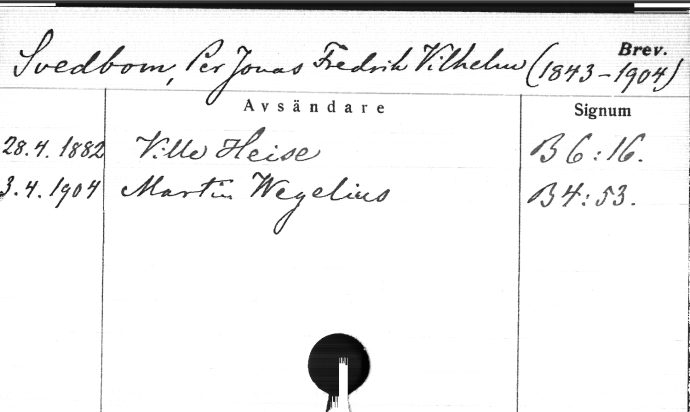 Brev.
Svedbom, Per Jonas Fredrik Vilhelm (1843-1904)
Avsändare Signum
28.4. 1882 Ville Heise B 6:16.
3.4. 1904 Martin Wegelius B 4:53.